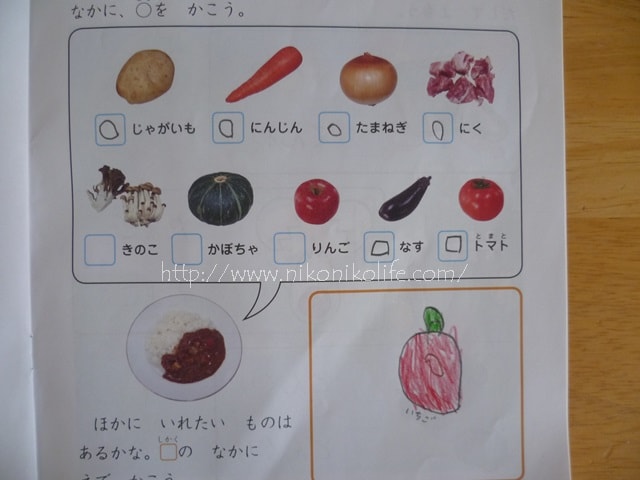 なかに、○を　かこう。
じゃがいも
にんじん
たまねぎ
にく
きのこ
かぼちゃ
りんご
なす
とまと
トマト
http://www.nikonikolife.com/
いちご
ほかに　いれたい　ものは
しかく
あるかな。□の　なかに
えで　かこう